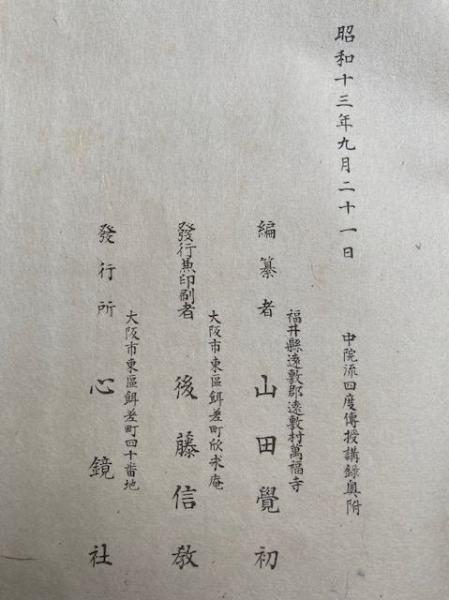 昭和十三年九月二十一日
中院流四度傳授講録奥附
福井縣遠敷郡遠敷村萬福寺
編纂者 山田覺初
大阪市東區餌差町欣求庵
發行兼印刷者 後藤信教
大阪市東區餌差町四十番地
發行所 心鏡社